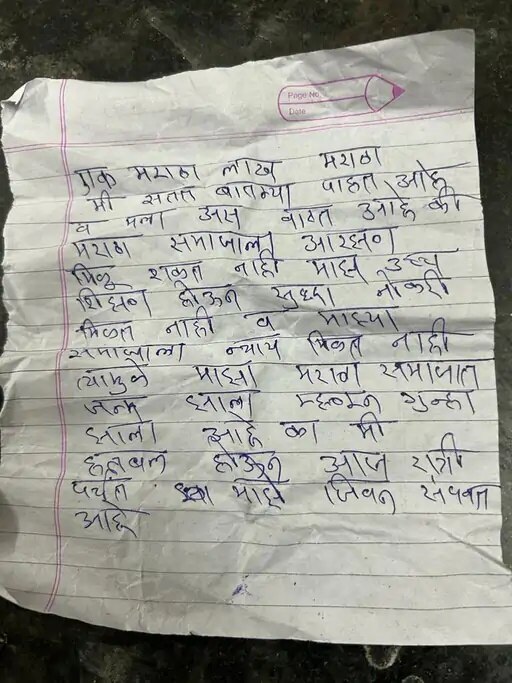 Page No.
Date
एक मराठा लाख मराठा
मी सतत बातम्या पाहत आहे
व मला असं वाटत आहे की
मराठा समाजाला आरक्षण
मिळू शकत नाही माझं उच्च
शिक्षण होऊन सुध्दा नोकरी
मिळत नाही व माझ्या
समाजाला न्याय मिळत नाही
त्यामुळे माझा मराठा समाजात
जन्म झाला म्हणून गुन्हा
झाला आहे का मी
हतबल होऊन आज रात्री
पर्यंत माझे जिवन संपवत
आहे